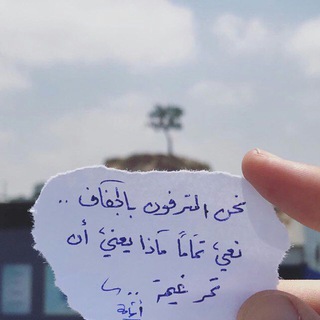 نحن المترفون بالجفاف ..
نعيْ تمامًا ماذا يعنيْ أن
تمر غيمة ..